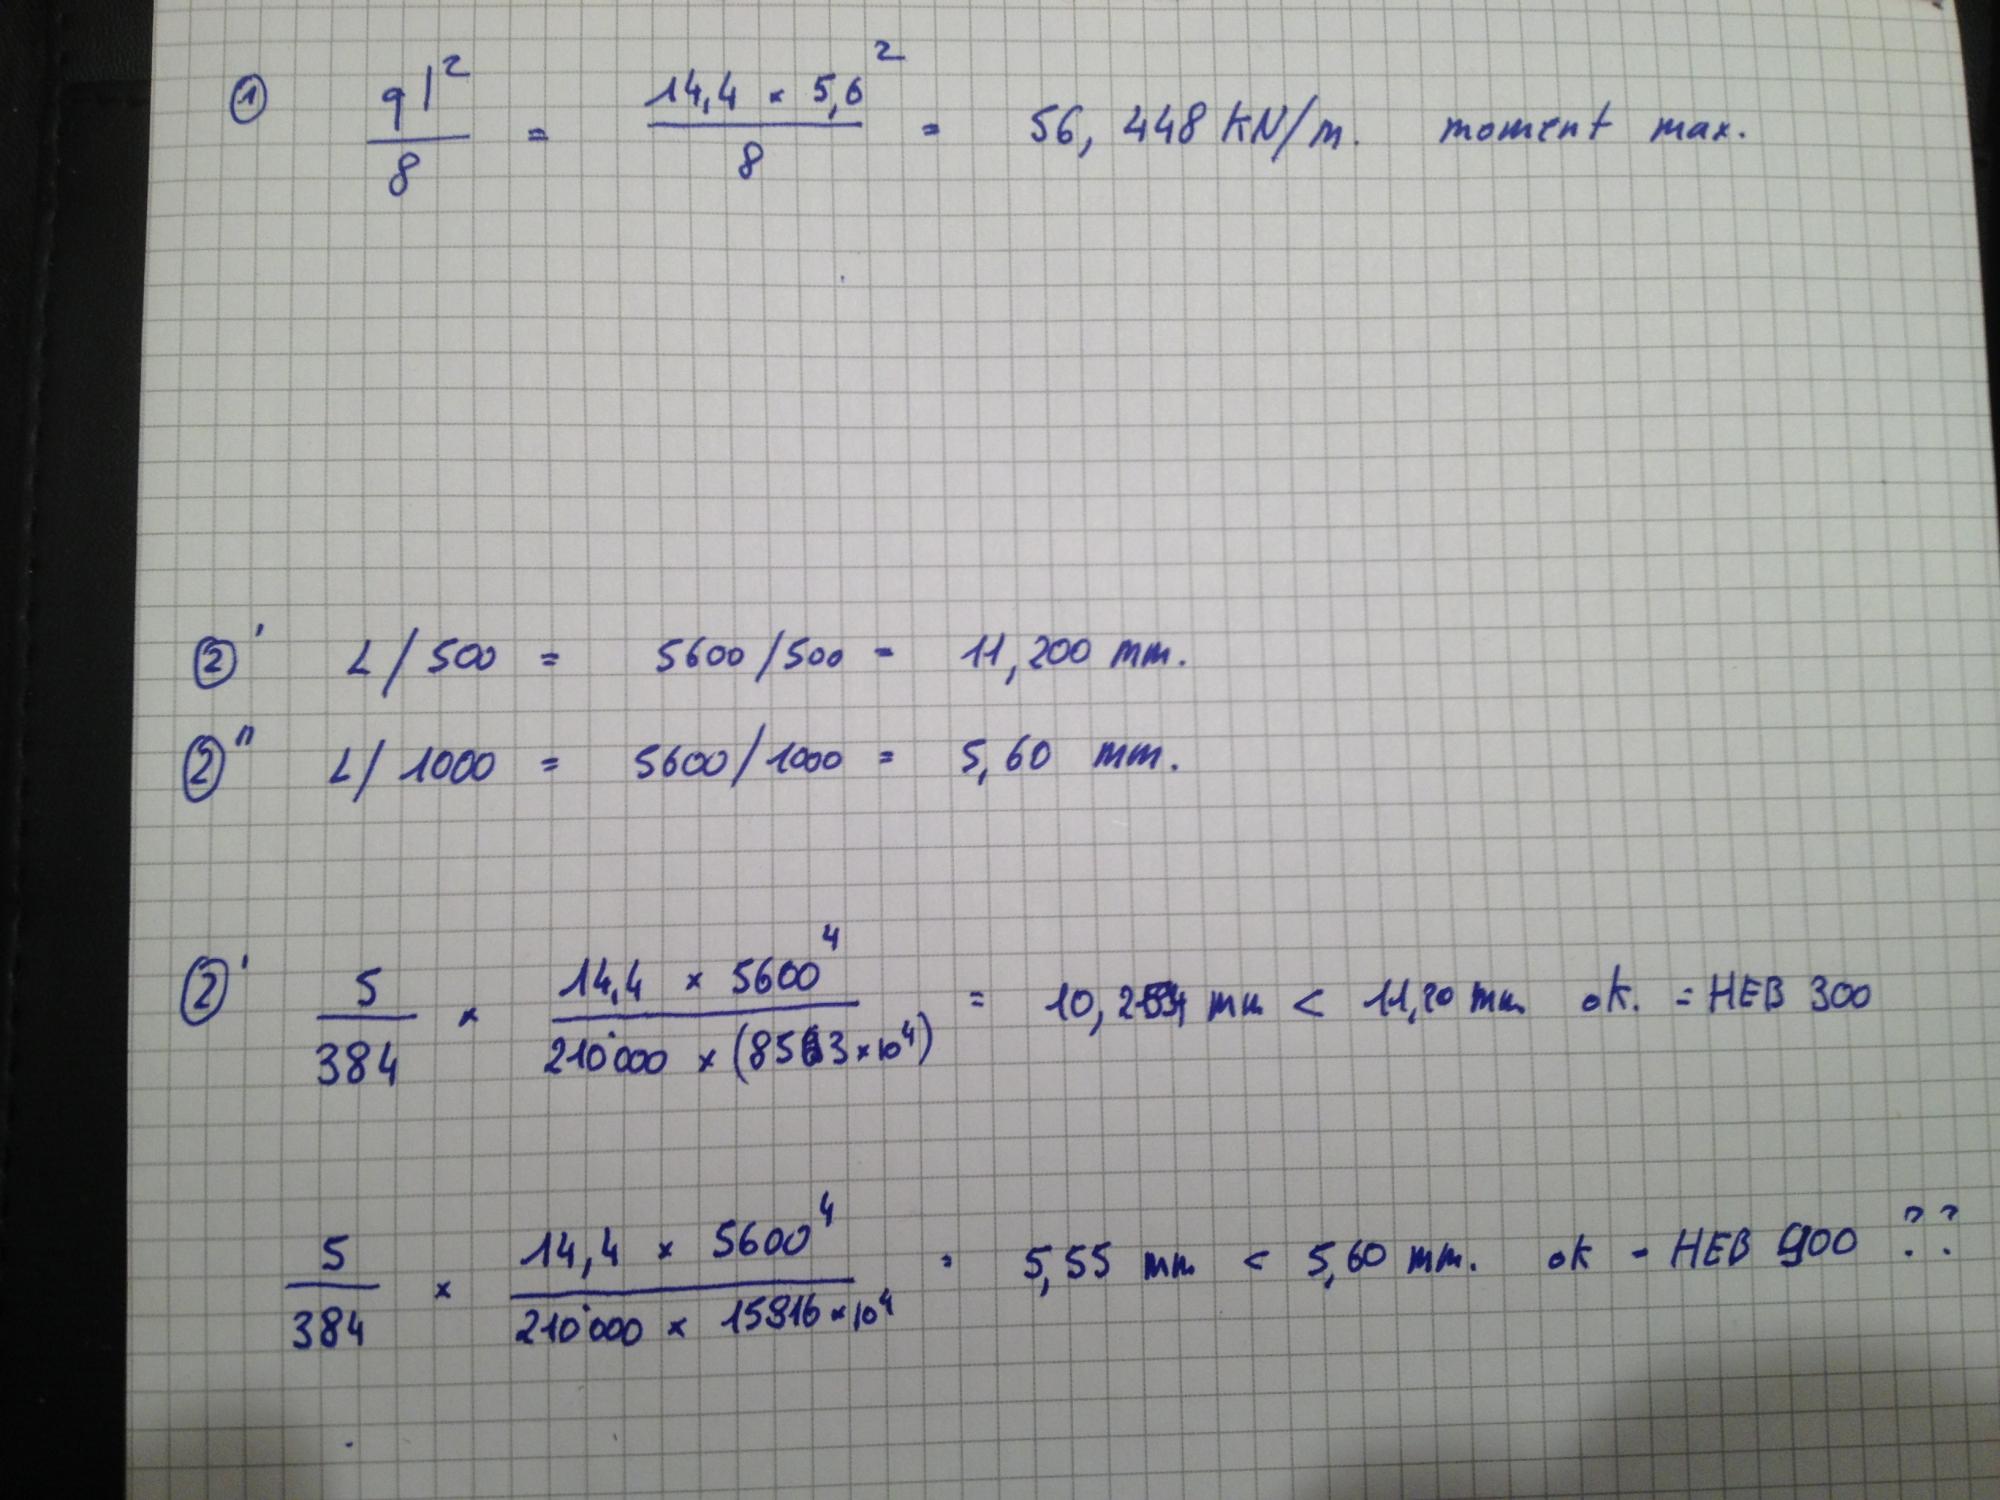 ① ql²/8 = 14,4 × 5,6²/8 = 56,448 KN/m. moment max.
②' L/500 = 5600/500 = 11,200 mm.
②" L/1000 = 5600/1000 = 5,60 mm.
②' 5/384 × 14,4 × 5600⁴/210'000 × (8563×10⁴) = 10,254 mm < 11,20 mm ok. = HEB 300
5/384 × 14,4 × 5600⁴/210'000 × 15816×10⁴ = 5,55 mm < 5,60 mm. ok - HEB 900 ??